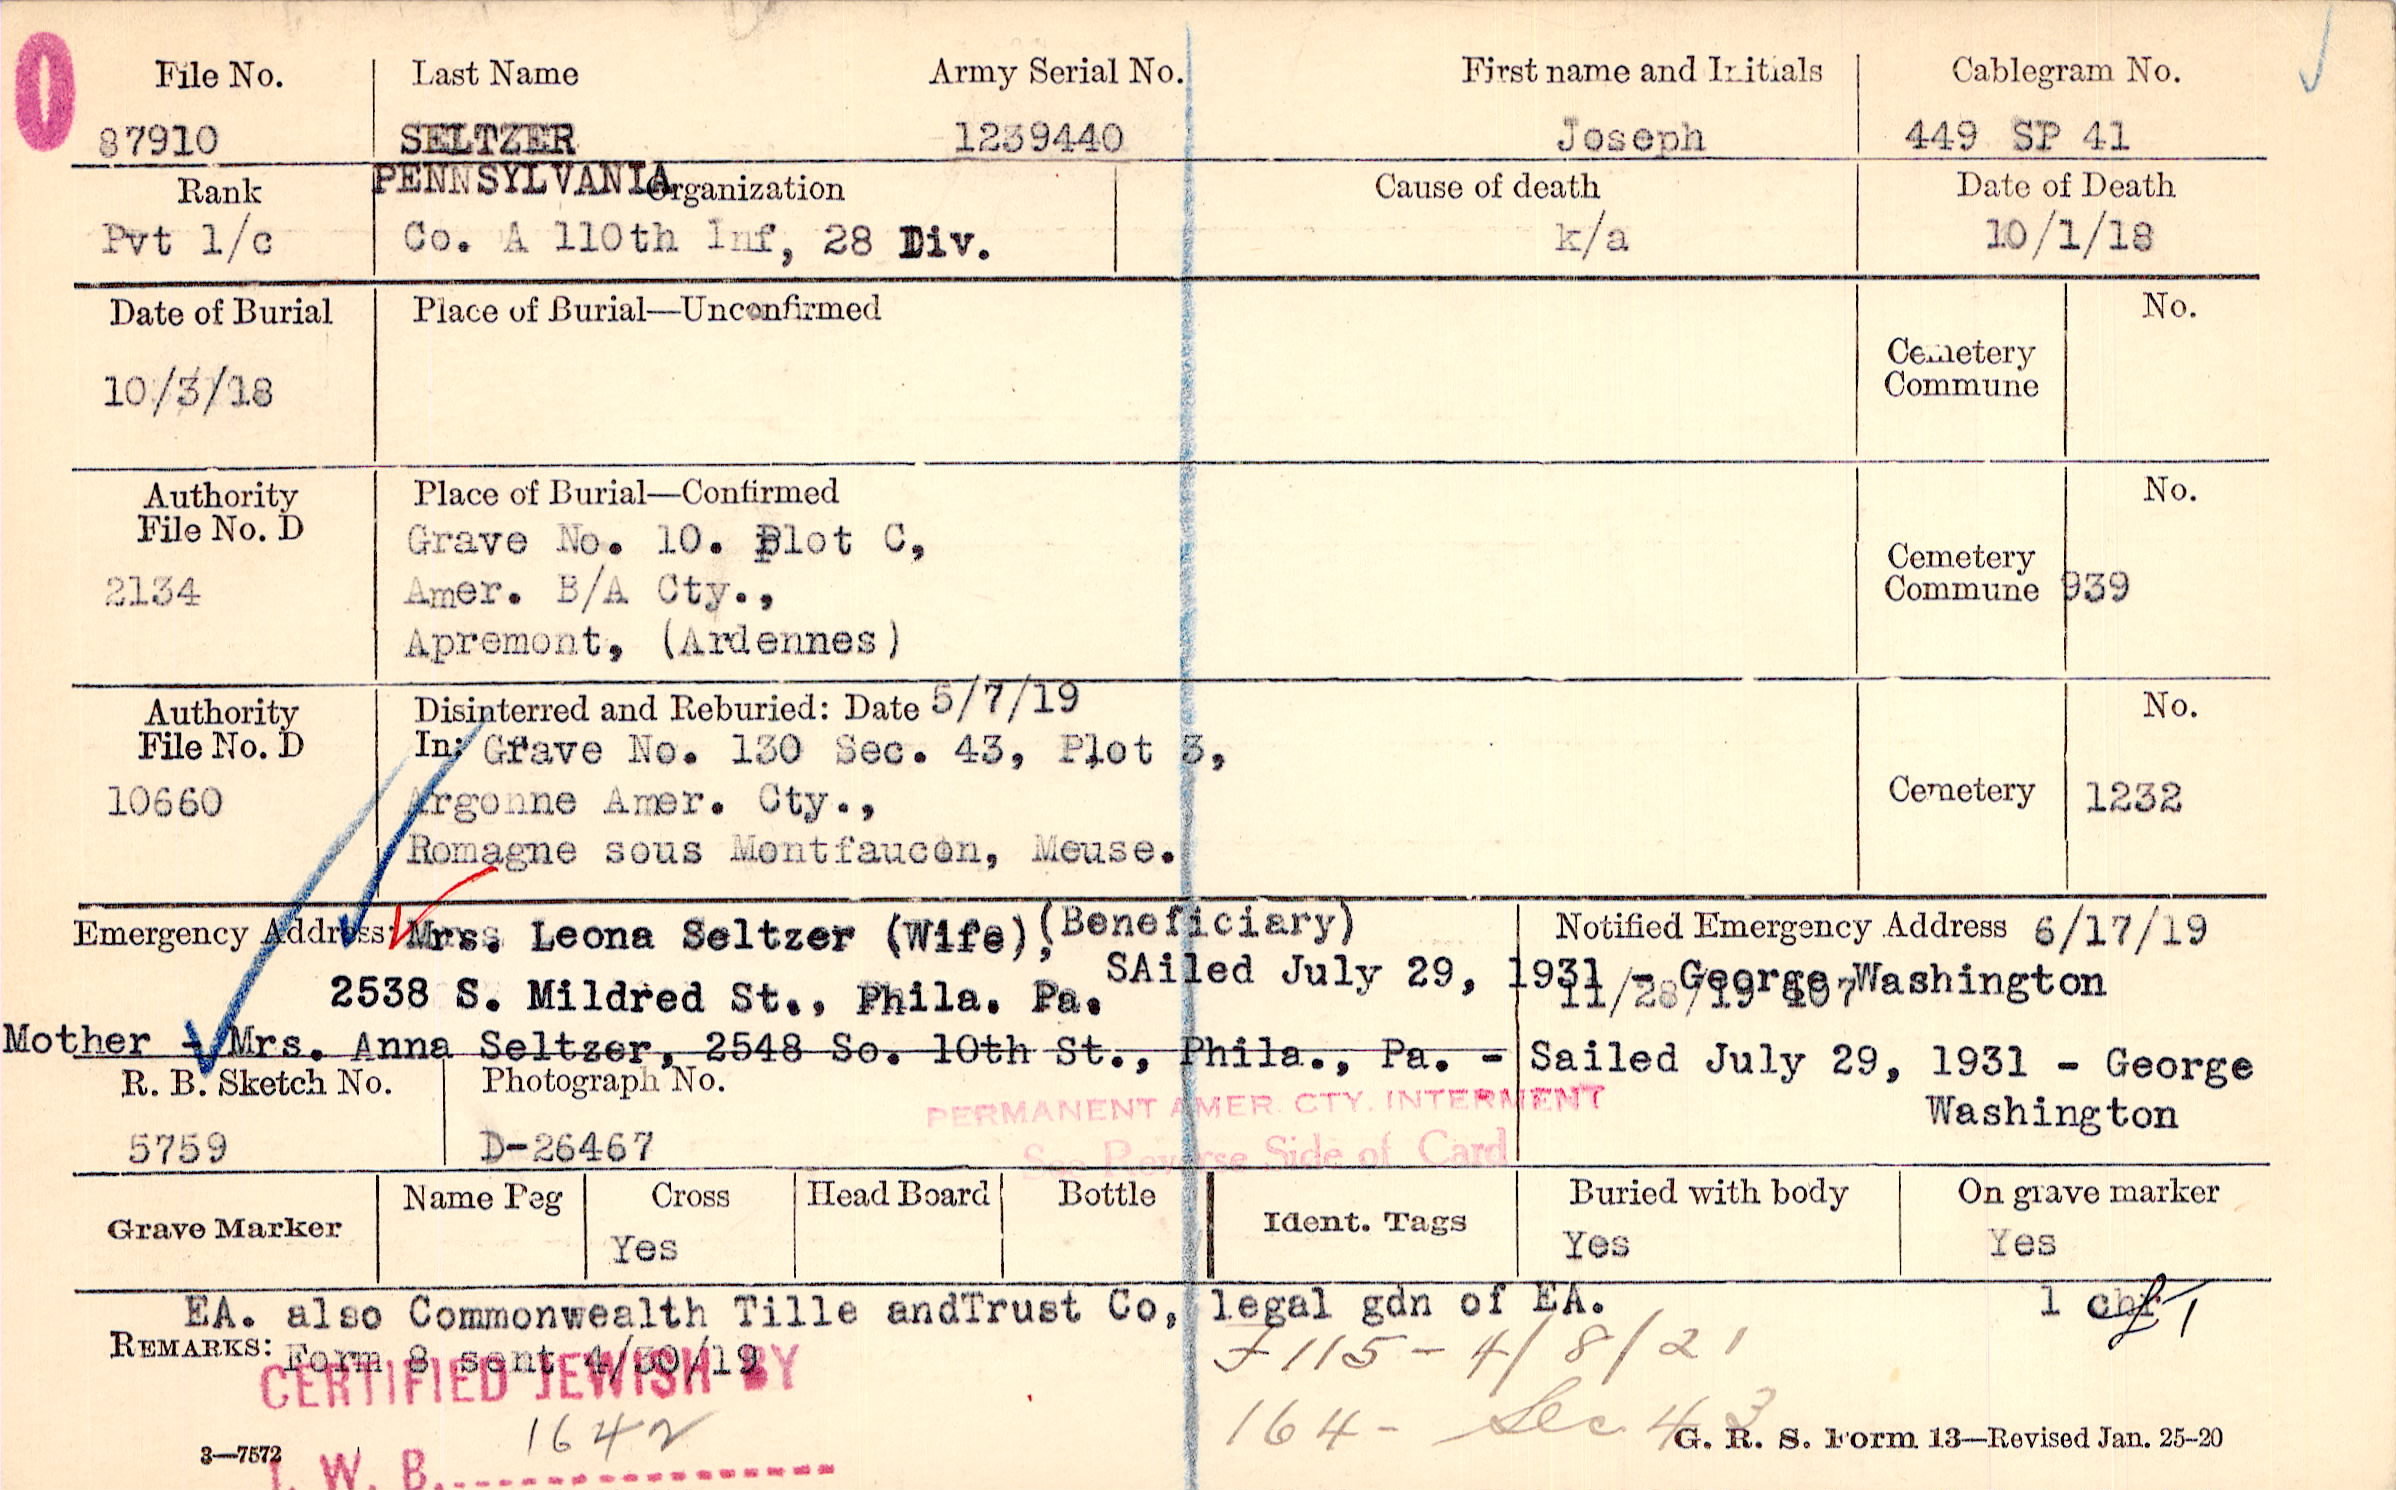 0
File No. Last Name Army Serial No. First name and Initials Cablegram No.
87910 SELTZER 1239440 Joseph 449 SP 41
PENNSYLVANIA
Rank Organization Cause of death Date of Death
Pvt 1/c Co. A 110th Inf, 28 Div. k/a 10/1/18
Date of Burial Place of Burial—Unconfirmed No.
10/3/18 Cemetery
Commune
Authority Place of Burial—Confirmed No.
File No. D Grave No. 10. Plot C,
2134 Amer. B/A Cty., Cemetery
Commune 939
Apremont, (Ardennes)
Authority Disinterred and Reburied: Date 5/7/19 No.
File No. D In: Grave No. 130 Sec. 43, Plot 3,
10660 Argonne Amer. Cty., Cemetery 1232
Romagne sous Montfaucon, Meuse.
Emergency Address: Mrs. Leona Seltzer (Wife), (Beneficiary) Notified Emergency Address 6/17/19
SAiled July 29, 1931 - George Washington
11/28/19
2538 S. Mildred St., Phila. Pa.
Mother - Mrs. Anna Seltzer, 2548 So. 10th St., Phila., Pa. - Sailed July 29, 1931 - George
Washington
R. B. Sketch No. Photograph No.
PERMANENT AMER. CTY. INTERMENT
5759 D-26467 See Reverse Side of Card
Grave Marker Name Peg Cross Head Board Bottle Ident. Tags Buried with body On grave marker
Yes Yes Yes
EA. also Commonwealth Tille andTrust Co, legal gdn of EA. 1 chr
REMARKS: Form 8 sent 4/30/19 F115 - 4/8/21
CERTIFIED JEWISH BY
1642 164 - Sec 43
3—7572 G. R. S. Form 13—Revised Jan. 25-20
J. W. B.